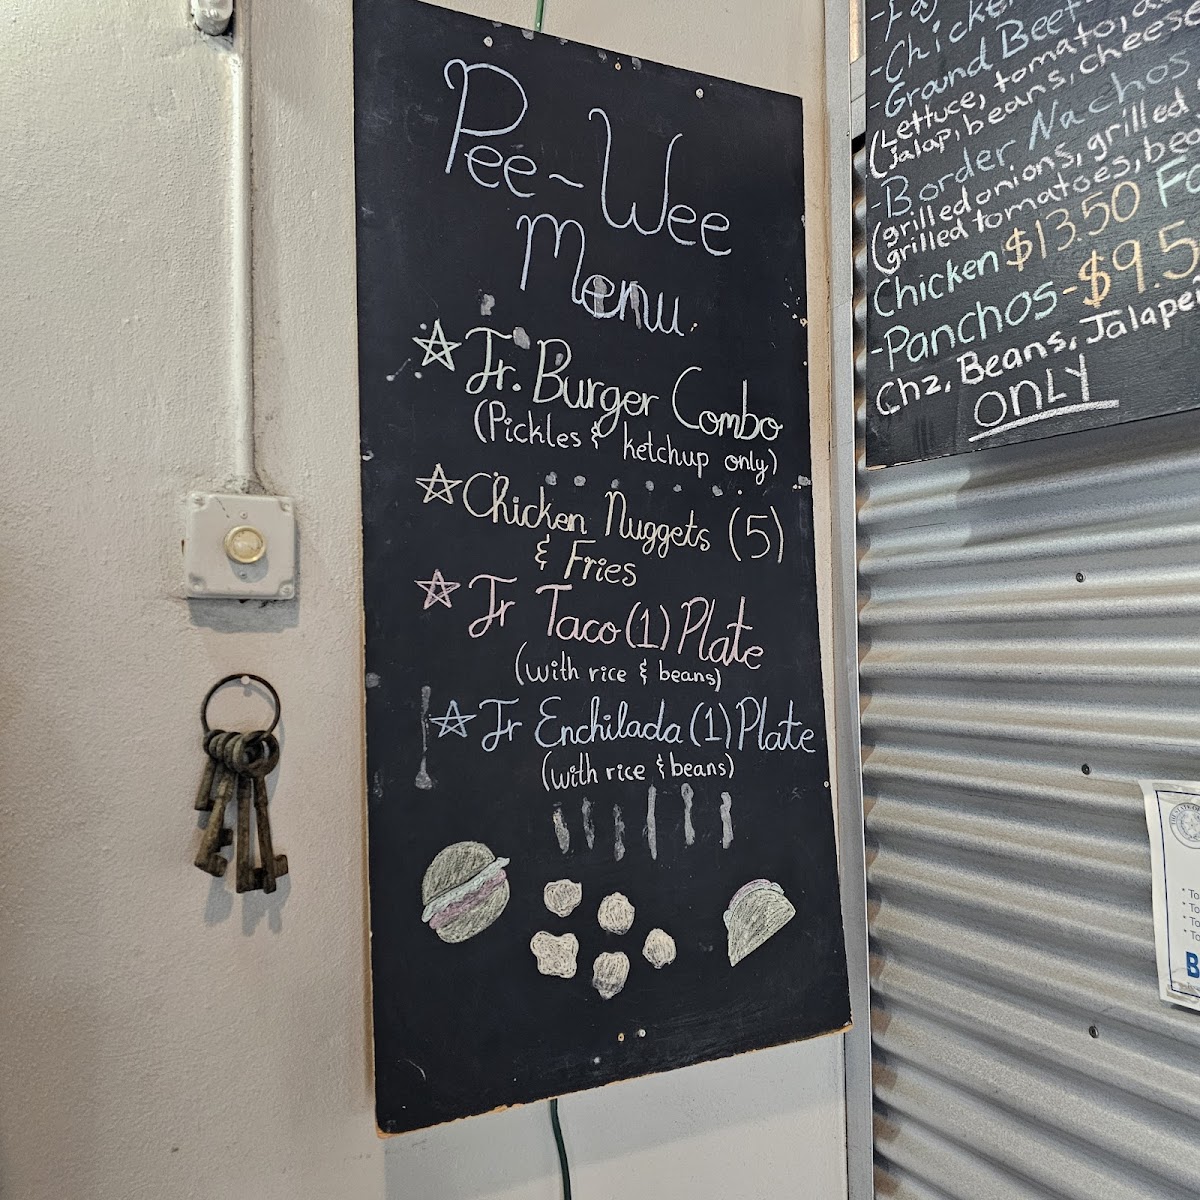 Pee-Wee
Menu
Jr. Burger Combo
(Pickles & ketchup only)
Chicken Nuggets (5)
& Fries
Jr Taco (1) Plate
(with rice & beans)
Jr Enchilada (1) Plate
(with rice & beans)
-Chicken
-Grand Beef
(Lettuce, tomato,
Jalap, beans, cheese
-Border Nachos
(grilled onions, grilled
grilled tomatoes,
Chicken $13.50
-Panchos-$9.5
Chz, Beans,
ONLY